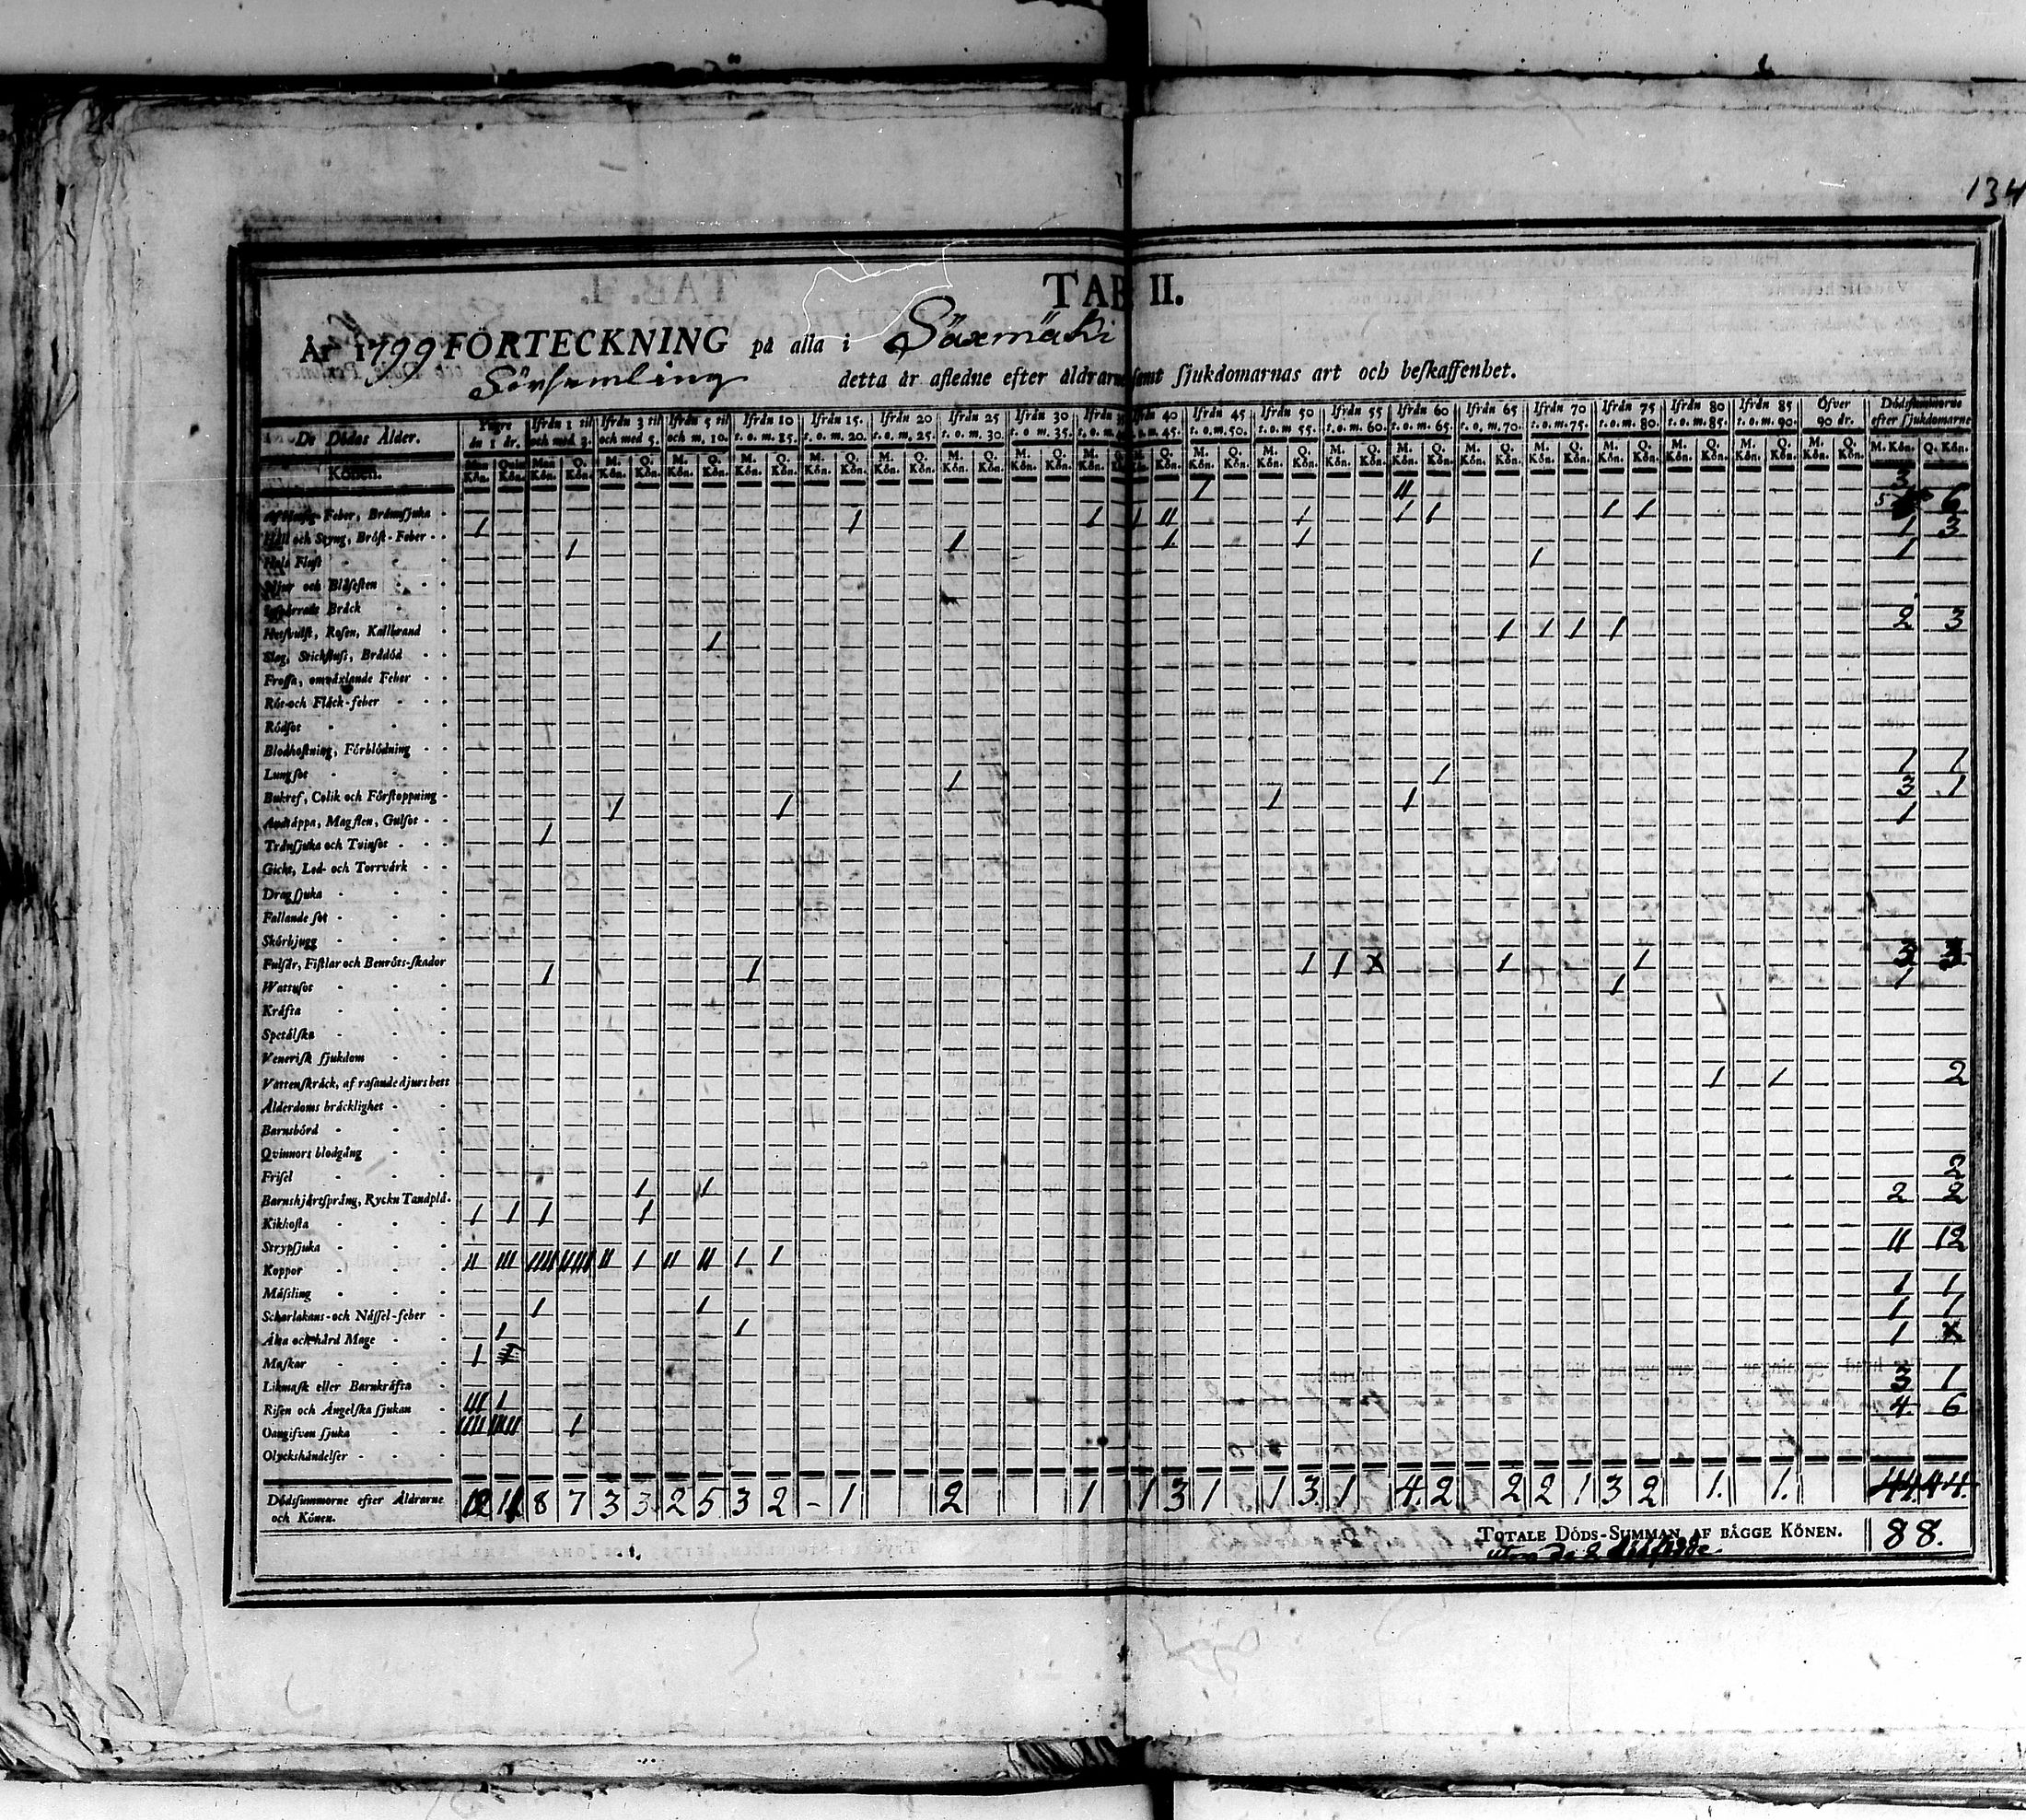 134
TAB. II.
År 1799 FÖRTECKNING på alla i Säxmäki
Församling detta år afledne efter åldrarne samt sjukdomarnas art och beskaffenhet.
De Dödas Ålder. Yngre än 1 år. Ifrån 1 til och med 3. Ifrån 3 til och med 5. Ifrån 5 til och m. 10. Ifrån 10 t. o. m. 15. Ifrån 15. t. o. m. 20. Ifrån 20 t. o. m. 25. Ifrån 25 t. o. m. 30. Ifrån 30 t. o. m. 35. Ifrån 40 t. o. m. 45. Ifrån 45 t. o. m. 50. Ifrån 50 t. o. m. 55. Ifrån 55 t. o. m. 60. Ifrån 60 t. o. m. 65. Ifrån 65 t. o. m. 70. Ifrån 70 t. o. m. 75. Ifrån 75 t. o. m. 80. Ifrån 80 t. o. m. 85. Ifrån 85 t. o. m. 90. Öfver 90 år. Dödssummorne efter sjukdomarne
Könen. Man Kön. Quin Kön. Man Kön. Q. Kön. M. Kön. Q. Kön. M. Kön. Q. Kön. M. Kön. Q. Kön. M. Kön. Q. Kön. M. Kön. Q. Kön. M. Kön. Q. Kön. M. Kön. Q. Kön. M. Kön. Q. Kön. M. Kön. Q. Kön. M. Kön. Q. Kön. M. Kön. Q. Kön. M. Kön. Q. Kön. M. Kön. Q. Kön. M. Kön. Q. Kön. M. Kön. Q. Kön. M. Kön. Q. Kön. M. Kön. Q. Kön. M. Kön. Q. Kön.
1 11 3
Feber, Brännsjuka 1 1 1 1 11 1 1 1 1 1 5 6
Håll och Styng, Bröst-Feber 1 1 1 1 1 3
Hals Fluss 1 1
Njur och Blåsesten
Bråck
Hetsvulst, Rosen, Kallbrand 1 1 1 1 1 2 3
Slag, Stickfluss, Brådöd
Frossa, omväxlande Feber
Röt-och Fläck-feber
Rödsot
Blodhostning, Förblödning
Lungsot 1 1 1 1
Bukref, Colik och Förstoppning 1 1 1 1 3 1
Andtäppa, Magsten, Gulsot 1 1
Trånsjuka och Tvinsot
Gickt, Led- och Torrvärk
Dragsjuka
Fallande sot
Skörbjugg
Fulsår, Fistlar och Benröts-skador 1 1 1 1 1 1 3 3
Wattusot 1 1
Kräfta
Spetälska
Venerisk sjukdom
Vattenskräck, af rasande djurs bett 1 1 2
Ålderdoms bräcklighet
Barnsbörd
Qvinnors blodgång
Frisel 1 1 2
Barnshjärtsprång, Ryckn Tandplå. 1 1 1 1 2 2
Kikhosta
Strypsjuka 11 111 1111 11111 11 1 11 11 1 1 11 12
Koppor
Mässling 1 1 1 1
Scharlakans-och Nässel-feber 1 1 1 1
Älta och hård Mage 1 1
Maskar
Likmask eller Barnkräfta 111 1 3 1
Risen och Ängelska sjukan 1111 11111 1 4 6
Oangifven sjuka
Olyckshändelser
Dödssummorne efter Åldrarne och Könen. 8 7 3 3 2 5 3 2 - 1 2 1 1 3 1 1 3 1 4 2 2 2 1 3 2 1. 1. 44 44.
TOTALE DÖDS-SUMMAN AF BÅGGE KÖNEN. 88.
utom de 2 dödfödde.